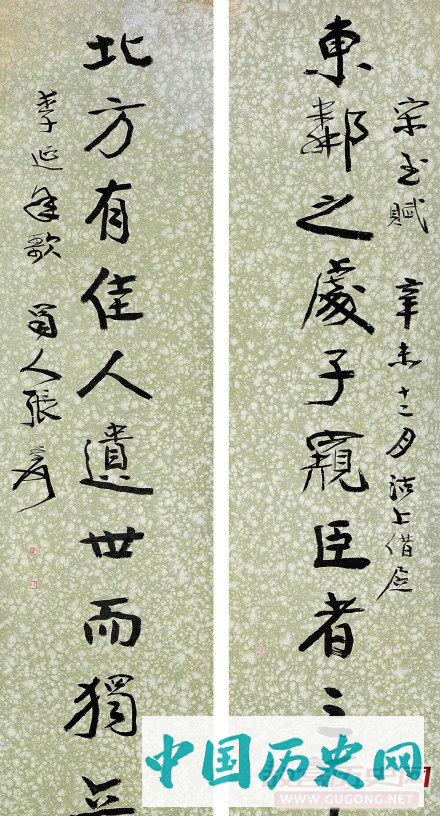 東鄰之處子窺臣者三
宋玉賦 辛未十二月 沽上借居
北方有佳人遺世而獨立
李延年歌 蜀人張爰
中国历史网
WWW.GUGONG.NET